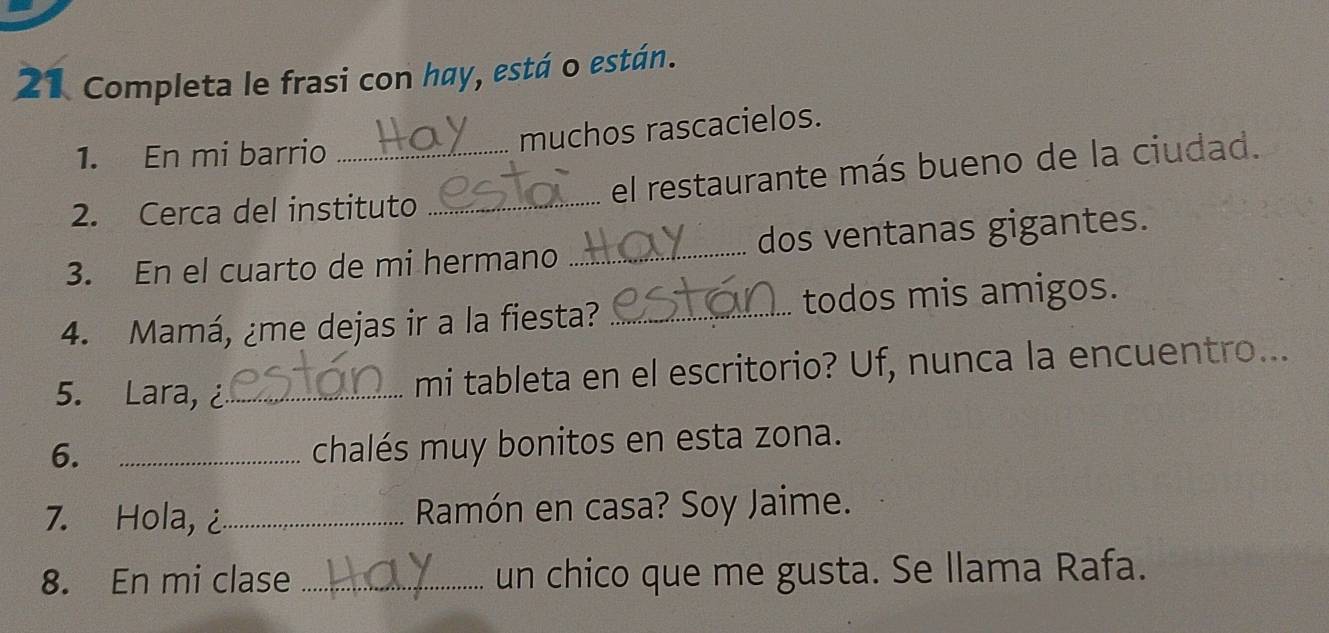 21 Completa le frasi con hay, está o están.
1. En mi barrio Hay muchos rascacielos.
2. Cerca del instituto está el restaurante más bueno de la ciudad.
3. En el cuarto de mi hermano Hay dos ventanas gigantes.
4. Mamá, ¿me dejas ir a la fiesta? están todos mis amigos.
5. Lara, ¿ están mi tableta en el escritorio? Uf, nunca la encuentro...
6. chalés muy bonitos en esta zona.
7. Hola, ¿ Ramón en casa? Soy Jaime.
8. En mi clase Hay un chico que me gusta. Se llama Rafa.